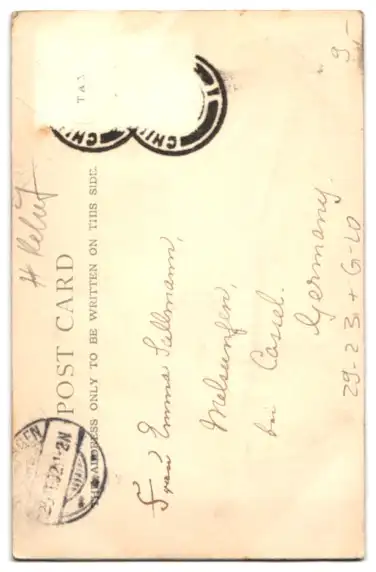 POST CARD
THE ADDRESS ONLY TO BE WRITTEN ON THIS SIDE.
Frau Emma Sallmann,
Melsungen,
bei Cassel.
Germany.
29-23+G-10
9,-
CHI
CHI